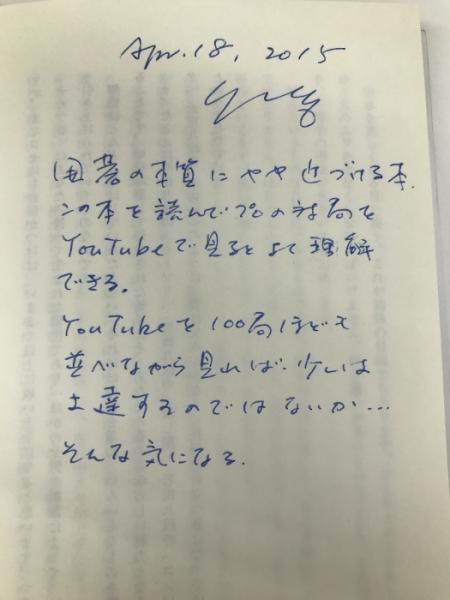 Apr. 18, 2015
囲碁の本質にやや近づける本.
この本を読んでプロの対局を
YouTubeで見るとよく理解
できる。
YouTubeを100局ほども
並べながら見れば、少しは
上達するのではないか…
そんな気になる.